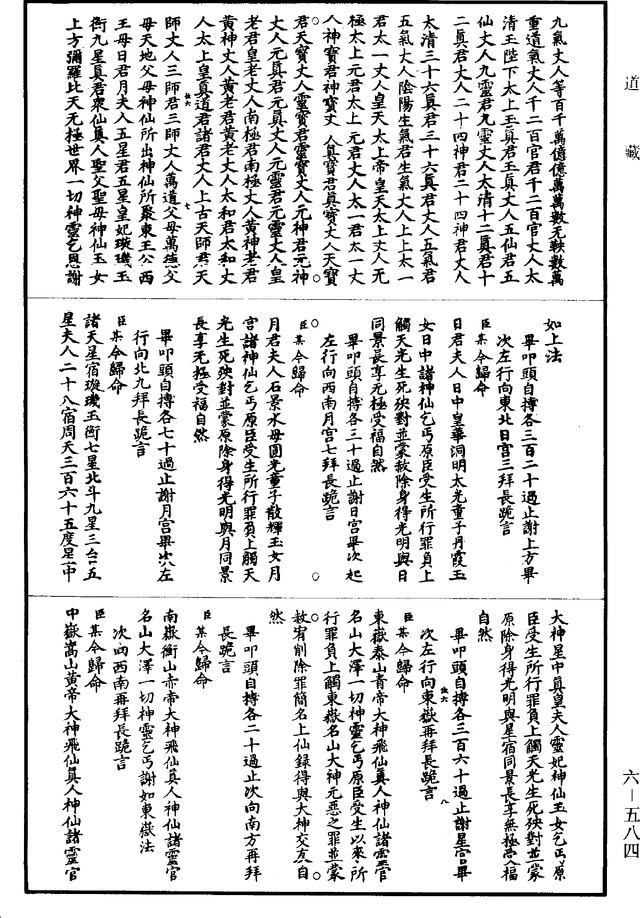 道藏
九氣丈人等百千萬億億萬萬數无鞅數萬
重道氣丈人千二百官君千二百官丈人太
清玉陛下太上玉真君玉真丈人五仙君五
仙丈人九靈君九靈丈人太清十二真君十
二真君丈人二十四神君二十四神君丈人
太清三十六真君三十六真君丈人五氣君
五氣丈人陰陽生氣君生氣丈人上上太一
君太一丈人皇天太上帝皇天太上丈人无
極太上元君太上元君丈人太一君太一丈
人神寶君神寶丈人真寶君真寶丈人天寶
君天寶丈人靈寶君靈寶丈人元神君元神
丈人元真君元真丈人元靈君元靈丈人皇
老君皇老丈人南極君南極丈人黃神老君
黃神丈人黃老君黃老丈人太和君太和丈
人太上皇真道君諸君丈人上古天師君天
師丈人三師君三師丈人萬道父母萬德父
母天地父母神仙所出神仙所聚東王公西
王母日君月夫人五星君五星皇妃璇璣玉
衡九星真君衆仙真人聖父聖母神仙玉女
上方彌羅比天无極世界一切神靈乞恩謝
如上法
畢叩頭自搏各三百二十過止謝上方畢
次左行向東北日宮三拜長跪言
臣某今歸命
日君夫人日中皇華洞明太光童子丹霞玉
女日中諸神仙乞丐原臣受生所行罪負上
觸天光生死殃對並蒙赦除身得光明與日
同景長享元極受福自然
畢叩頭自搏各三十過止謝日宮畢次起
左行向西南月宮七拜長跪言
臣某今歸命
月君夫人石景水母圓光童子散輝玉女月
宮諸神仙乞丐原臣受生所行罪負上觸天
光生死殃對並蒙原除身得光明與月同景
長享无極受福自然
畢叩頭自搏各七十過止謝月宮畢次左
行向北九拜長跪言
臣某今歸命
諸天星宿璇璣玉衡七星北斗九星三台五
星夫人二十八宿周天三百六十五度星中
大神星中真皇夫人靈妃神仙玉女乞丐原
臣受生所行罪負上觸天光生死殃對並蒙
原除身得光明與星宿同景長享無極受福
自然
畢叩頭自搏各三百六十過止謝星宮畢
次左行向東嶽再拜長跪言
臣某今歸命
東嶽泰山青帝大神飛仙真人神仙諸靈官
名山大澤一切神靈乞丐原臣受生以來所
行罪負上觸東嶽名山大神元惡之罪並蒙
赦宥削除罪簡名上仙録得與大神交友自
然
畢叩頭自搏各二十過止次向南方再拜
長跪言
臣某今歸命
南嶽衡山赤帝大神飛仙真人神仙諸靈官
名山大澤一切神靈乞丐謝如東嶽法
次向西南再拜長跪言
臣某今歸命
中嶽嵩山黃帝大神飛仙真人神仙諸靈官
六—五八四